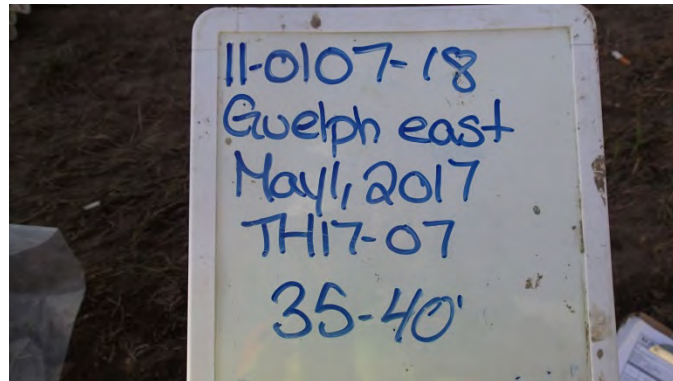 11-0107-18
Guelph east
May 1, 2017
TH17-07
35-40'